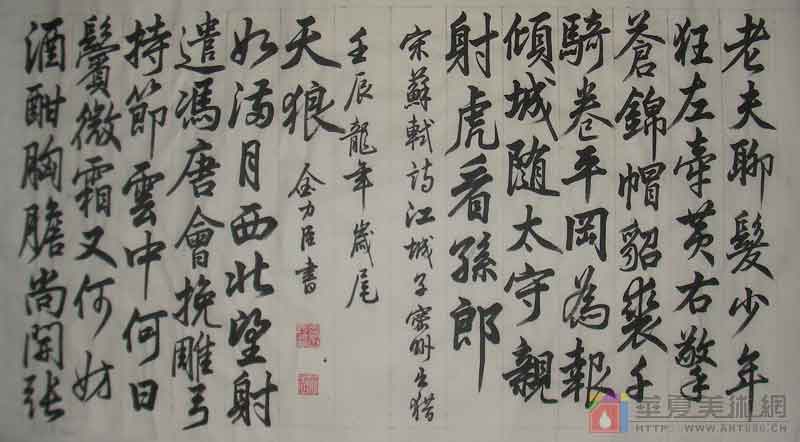 老夫聊髮少年
狂左牽黄右擎
蒼錦帽貂裘千
騎卷平岡為報
傾城随太守親
射虎看孫郎
宋蘇軾詩江城子密州出猎
酒酣胸膽尚開張
鬢微霜又何妨
持節雲中何日
遣馮唐會挽雕弓
如满月西北望射
天狼
壬辰龍年歲尾
金力臣書
華夏美術網
HTTP://WWW.ART86.CN